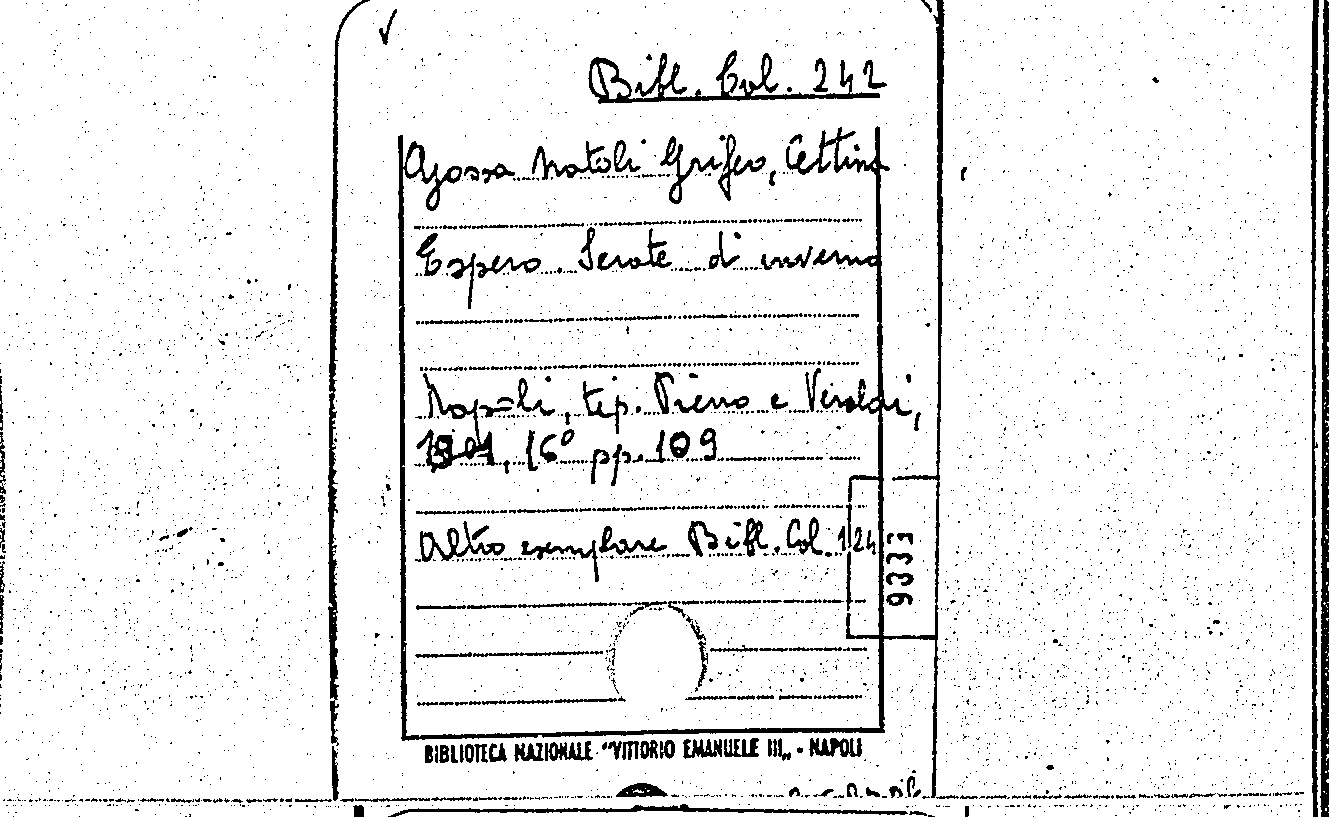 Bibl. Col. 242
Ajossa Natoli Grifeo, Cettina
Espero. Serate di inverno
Napoli, tip. Pierro e Veraldi,
1901, 16° pp. 109
Altro esemplare Bibl. Col. 124
9333
BIBLIOTECA NAZIONALE "VITTORIO EMANUELE III„ - NAPOLI